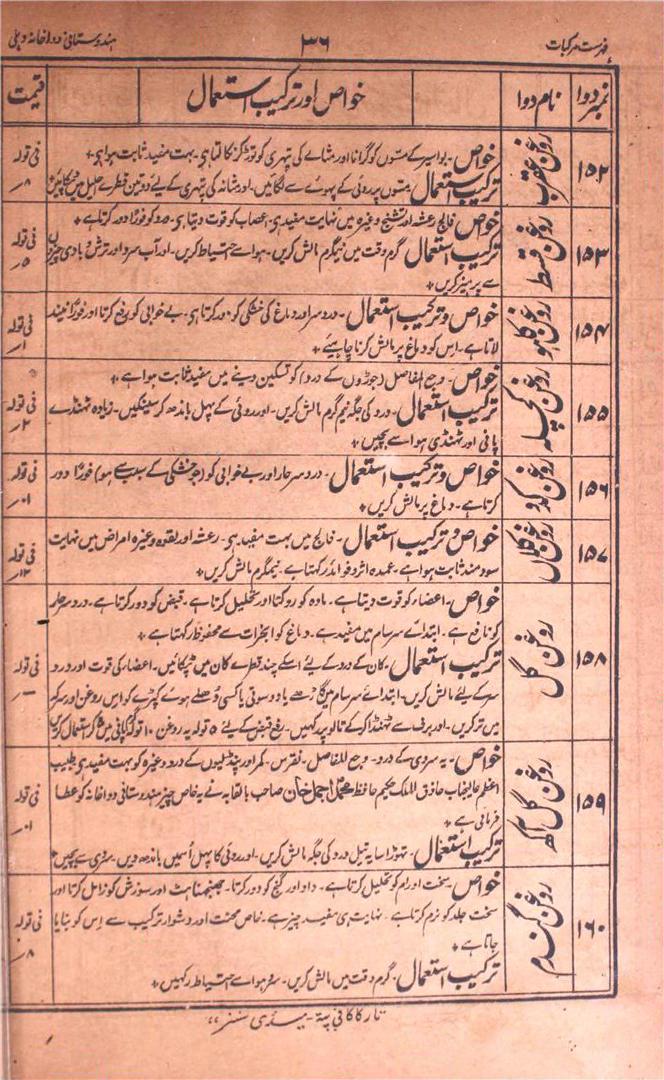 فہرست مرکبات ۳۶ ہندوستانی دواخانہ دہلی
نمبر دوا نام دوا خواص اور ترکیب استعمال قیمت
۱۵۲ روغن عقرب خواص۔ بواسیر کے مستوں کو گرانا اور مثانے کی پتھری کو توڑ کر نکالتا ہی۔ بہت مفید ثابت ہوا ہی +
ترکیب استعمال۔ مستوں پر روئی کے پھوئے سے لگائیں۔ اور مثانہ کی پتھری کے لیے دو تین قطرے احلیل میں ٹپکائیں فی تولہ ۸؍
۱۵۳ روغن قسط خواص۔ فالج رعشہ اور تشنج وغیرہ میں نہایت مفید ہی۔ اعصاب کو قوت دیتا ہی۔ کو فوراً دور کرتا ہے +
ترکیب استعمال گرم وقت میں نیمگرم مالش کریں۔ ہوا سے احتیاط کریں۔ اور آب سرد اور ترش و بادی چیزوں
سے پرہیز کریں + فی تولہ ۵؍
۱۵۴ روغن کاہو خواص و ترکیب استعمال۔ درد سر اور دماغ کی خشکی کو دور کرتا ہی۔ بے خوابی کو رفع کرتا اور فوراً نیند
لاتا ہے۔ اس کو دماغ پر مالش کرنا چاہیئے + فی تولہ ۱؍
۱۵۵ روغن کچلہ خواص۔ وجع المفاصل (جوڑوں کے درد) کو تسکین دینے میں مفید ثابت ہوا ہے +
ترکیب استعمال۔ درد کی جگہ نیم گرم مالش کریں۔ اور روئی کے پہل باندھ کر سینکیں۔ زیادہ ٹھنڈے
پانی اور ٹھنڈی ہوا سے بچیں + فی تولہ ۲؍
۱۵۶ روغن کدو خواص و ترکیب استعمال۔ درد سر حار اور بے خوابی کو (جو خشکی کے سبب سے ہو) فوراً دور
کرتا ہے۔ دماغ پر مالش کریں + فی تولہ ۱۰؍
۱۵۷ روغن کلاں خواص و ترکیب استعمال۔ فالج میں بہت مفید ہی۔ رعشہ اور لقوہ وغیرہ امراض میں نہایت
سود مند ثابت ہوا ہے۔ عمدہ اثر و فوائد رکھتا ہے۔ نیمگرم مالش کریں + فی تولہ ۱۲؍
۱۵۸ روغن گل خواص۔ اعضاء کو قوت دیتا ہے۔ مادہ کو روکتا اور تحلیل کرتا ہے۔ قبض کو دور کرتا ہے۔ درد سر حار
کو نافع ہے۔ ابتدائے سرسام میں مفید ہے۔ دماغ کو ابخرات سے محفوظ رکھتا ہے +
ترکیب استعمال۔ کان کے درد کے لیے اسکے چند قطرے کان میں ٹپکائیں۔ اعضاء کی قوت اور درد
سر کے لیے مالش کریں۔ ابتدائے سرسام میں یا دوسوتی یا کسی دُھلے ہوئے کپڑے کو اس روغن اور سرکہ
میں تر کریں۔ اور برف سے ٹھنڈا کر کے تالو پر رکھیں۔ رفع قبض کے لیے ۵ تولہ یہ روغن ۱۰ تولہ استعمال کریں فی تولہ
۱۵۹ روغن گل آکھ خواص۔ یہ سردی کے درد۔ وجع المفاصل۔ نقرس۔ کمر اور پنڈلیوں کے درد وغیرہ کو بہت مفید ہی طبیب
اعظم عالیجناب حاذق الملک حکیم حافظ محمد اجمل خان صاحب بالقابہ نے یہ خاص چیز ہندوستانی دواخانہ کو عطا
فرمائی ہے +
ترکیب استعمال۔ تھوڑا سا یہ تیل درد کی جگہ مالش کریں۔ اور روئی کا پہل اُسمیں باندھ دیں۔ سردی سے بچیں + فی تولہ ۱۰؍
۱۶۰ روغن گندم خواص۔ سخت اورام کو تحلیل کرتا ہے۔ داد اور گنج کو دور کرتا۔ جھنجھناہٹ اور سوزش کو زائل کرتا اور
سخت جلد کو نرم کرتا ہے۔ نہایت ہی مفید چیز ہے۔ خاص محنت اور دشوار ترکیب سے اِس کو بنایا
جاتا ہے +
ترکیب استعمال۔ گرم وقت میں مالش کریں۔ سرد ہوا سے احتیاط رکھیں + فی تولہ ۸؍
تار کا کافی پتہ۔ میڈی سنز